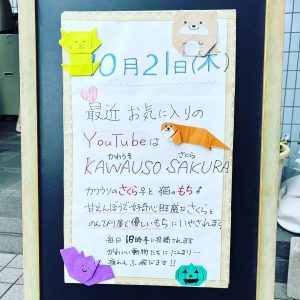 10月21日(木)
最近 お気に入りの
YouTubeは
かわうそ さくら
KAWAUSO SAKURA
カワウソのさくら♀と 猫のもち♂
甘えんぼうで好奇心旺盛なさくらと
のんびり屋で優しいもちにいやされます
毎日 18時半に投稿されます
かわいい動物たちに にんまり…
疲れも ふっ飛びます!!